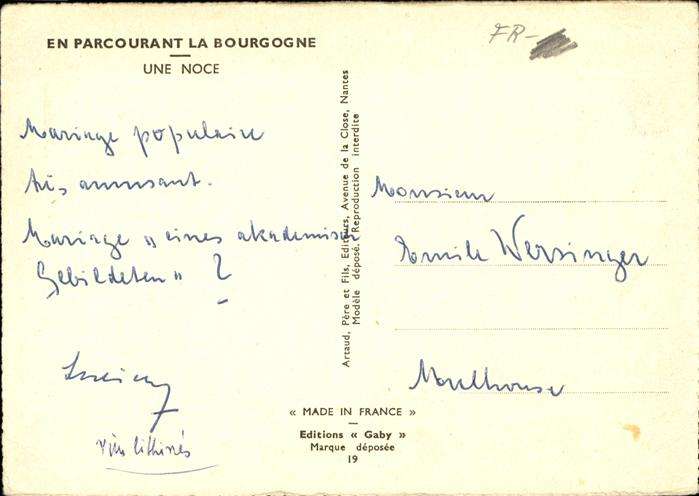 EN PARCOURANT LA BOURGOGNE
UNE NOCE
FR-
Mariage populaire
très amusant.
Mariage " eines akademisch
Gebildeten " ?
Artaud, Père et Fils, Editeurs, Avenue de la Close, Nantes
Modèle déposé. Reproduction interdite
Monsieur
Emile Wersinger
Moulhouse
« MADE IN FRANCE »
Editions « Gaby »
Marque déposée
19